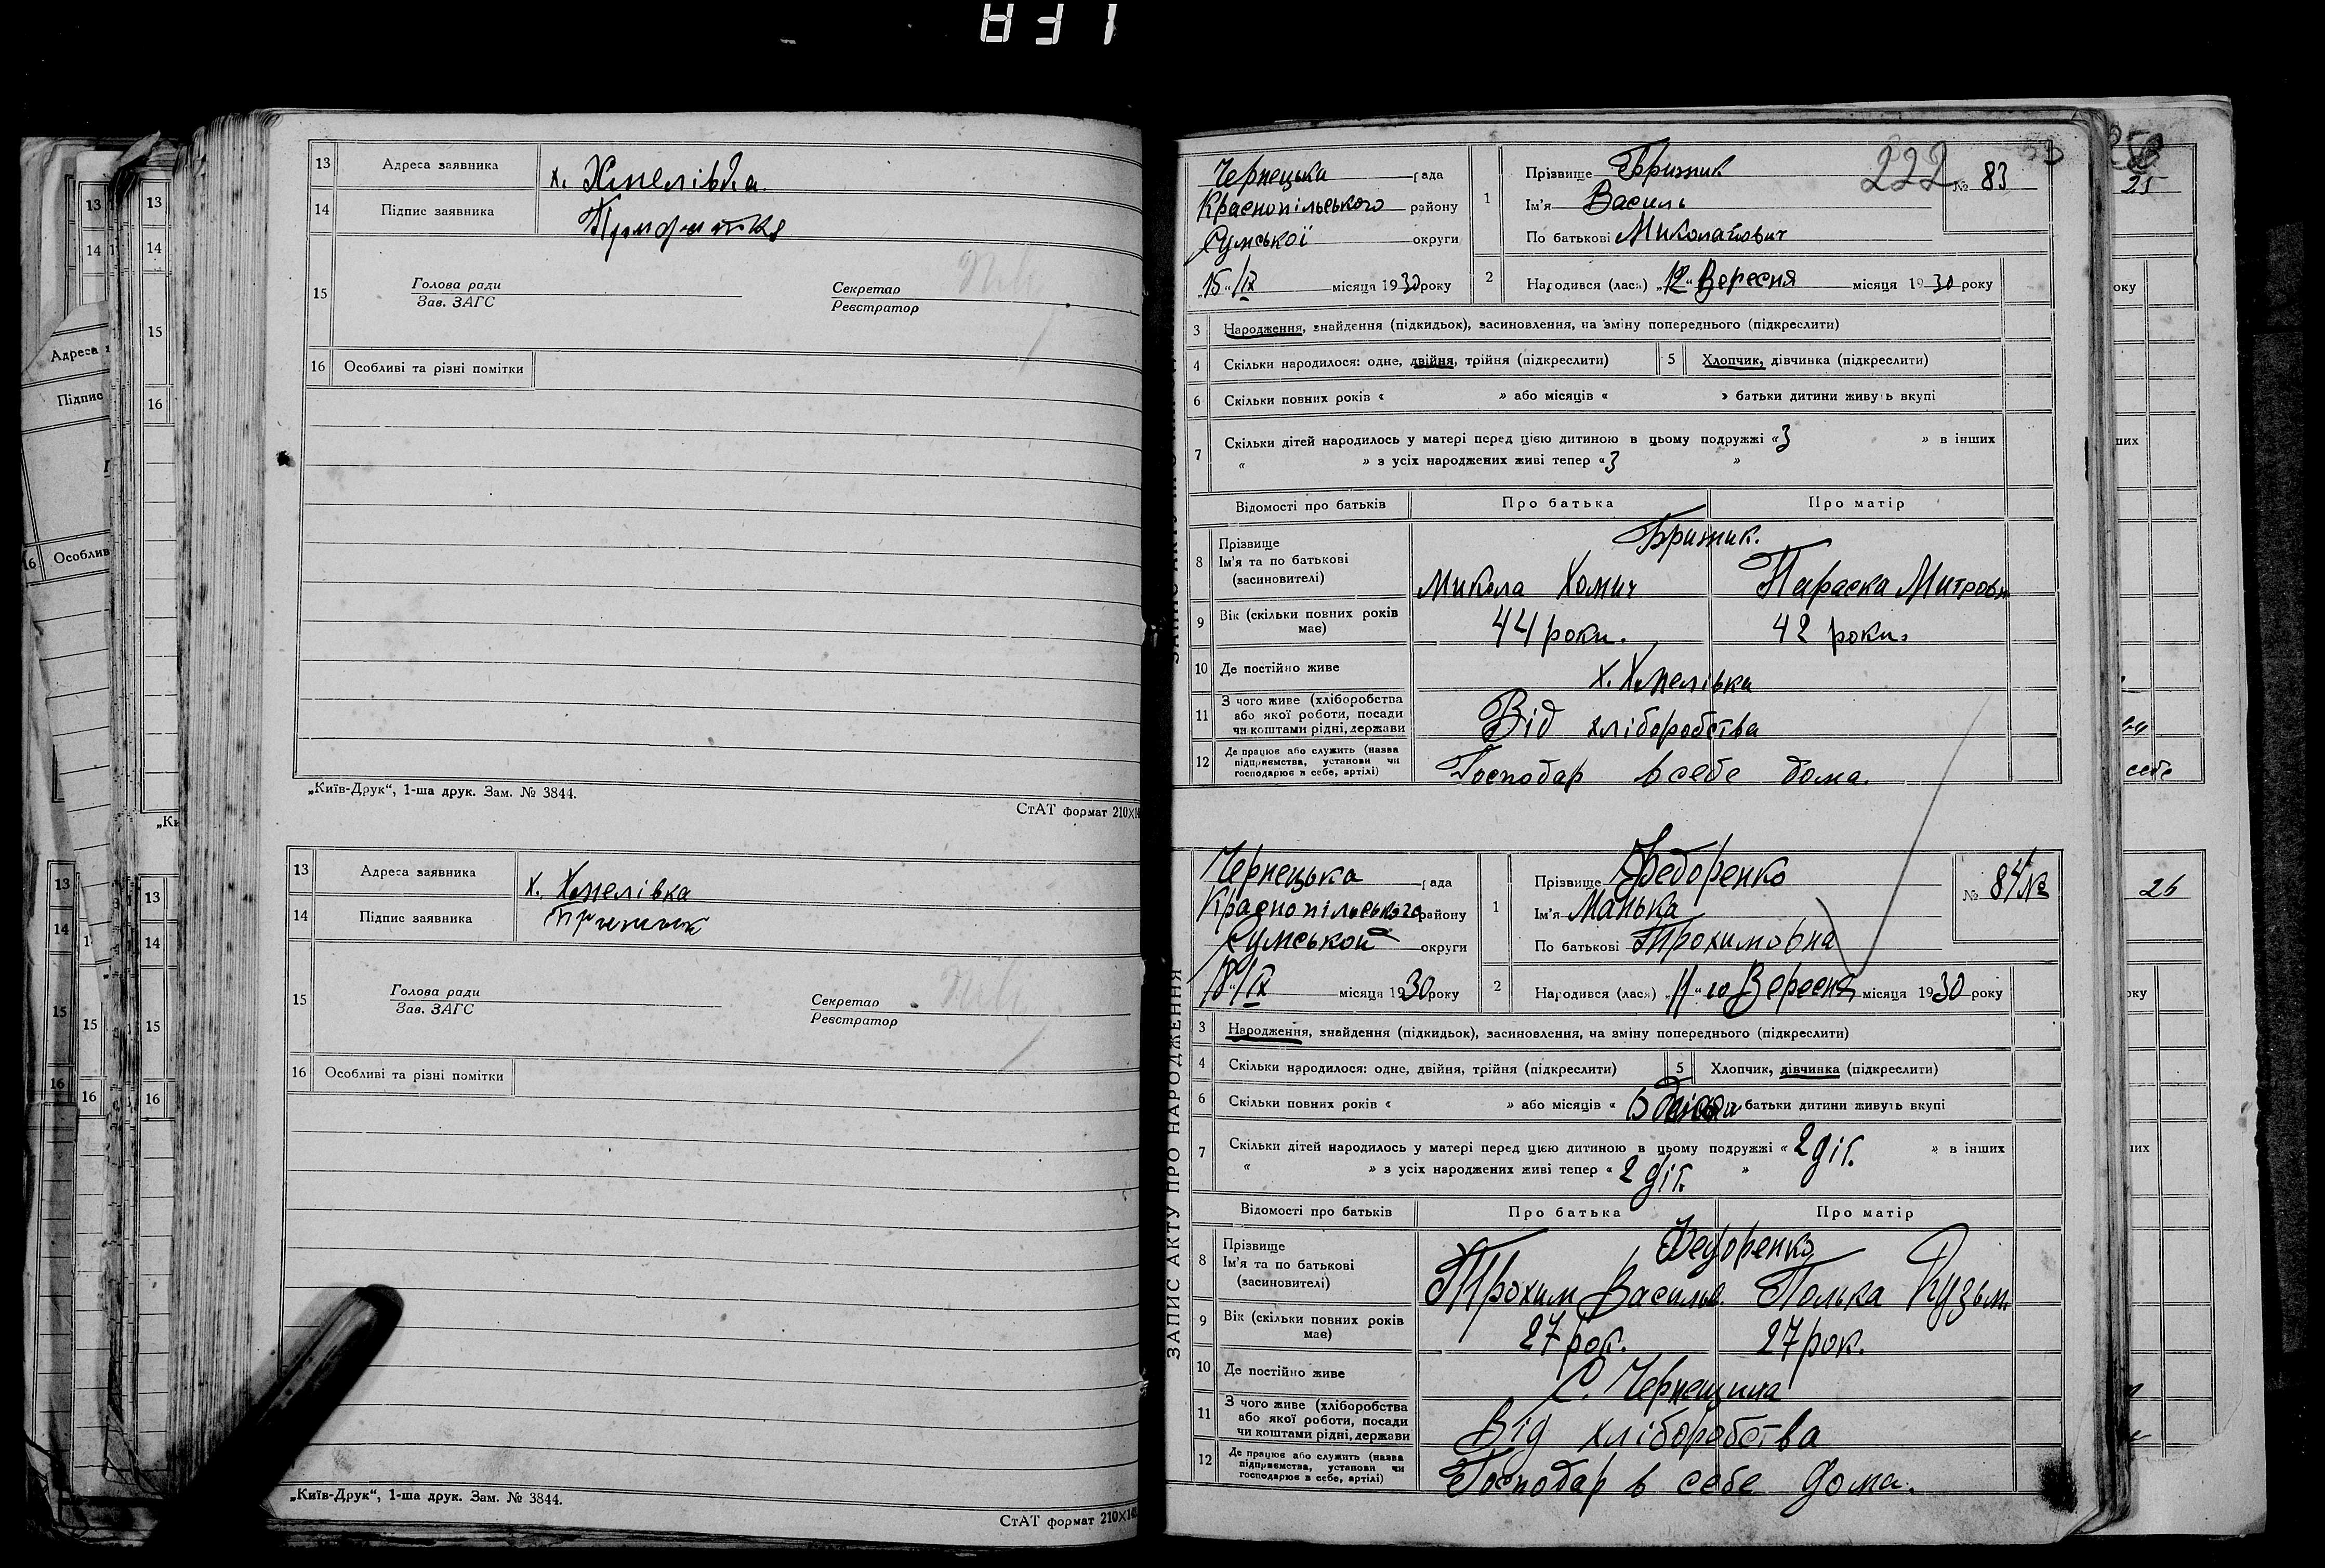 13 Адреса заявника х. Хмелівка
14 Підпис заявника
15 Голова ради
Зав. ЗАГС
Секретар
Реєстратор
16 Особливі та різні помітки
„Київ-Друк“, 1-ша друк. Зам. № 3844.
СтАТ формат 210×1
13 Адреса заявника х. Хмелівка
14 Підпис заявника
15 Голова ради
Зав. ЗАГС
Секретар
Реєстратор
16 Особливі та різні помітки
„Київ-Друк“, 1-ша друк. Зам. № 3844.
СтАТ формат 210×14
222
Чернецька рада
Краснопільського району
Сумської округи
„15“ IX місяця 1930 року
1 Прізвище Брижик № 83
Ім'я Василь
По батькові Миколайович
2 Народився (лась) „12“ Вересня місяця 1930 року
3 Народження, знайдення (підкидьок), засиновлення, на зміну попереднього (підкреслити)
4 Скільки народилося: одне, двійня, трійня (підкреслити) 5 Хлопчик, дівчинка (підкреслити)
6 Скільки повних років « » або місяців « » батьки дитини живуть вкупі
7 Скільки дітей народилось у матері перед цією дитиною в цьому подружжі «3 » в інших
« » з усіх народжених живі тепер «3 »
Відомості про батьків Про батька Про матір
8 Прізвище Брижик.
Ім'я та по батькові
(засиновителі) Микола Хомич Параска Митровн
9 Вік (скільки повних років має) 44 роки. 42 роки.
10 Де постійно живе х. Хмелівка
11 З чого живе (хліборобства
або якої роботи, посади
чи коштами рідні, держави Від хліборобства
12 Де працює або служить (назва
підприємства, установи чи
господарює в себе, артілі) Господар в себе дома.
ЗАПИС АКТУ ПРО НАРОДЖЕННЯ
Чернецька рада
Краснопільського району
Сумської округи
18“ IX місяця 1930 року
1 Прізвище Федоренко № 84
Ім'я Манька
По батькові Трохимовна
2 Народився (лася) „11“ го Вересня місяця 1930 року
3 Народження, знайдення (підкидьок), засиновлення, на зміну попереднього (підкреслити)
4 Скільки народилося: одне, двійня, трійня (підкреслити) 5 Хлопчик, дівчинка (підкреслити)
6 Скільки повних років « » або місяців « батьки дитини живуть вкупі
7 Скільки дітей народилось у матері перед цією дитиною в цьому подружжі « 2 діт. » в інших
« » з усіх народжених живі тепер « 2 діт. »
Відомості про батьків Про батька Про матір
8 Прізвище Федоренко
Ім'я та по батькові
(засиновителі) Трохим Васильв. Полька Кузьм.
9 Вік (скільки повних років має) 27 рок. 27 рок.
10 Де постійно живе С. Чернещина
11 З чого живе (хліборобства
або якої роботи, посади
чи коштами рідні, держави Від хліборобства
12 Де працює або служить (назва
підприємства, установи чи
господарює в себе, артілі) Господар в себе дома.
25
26